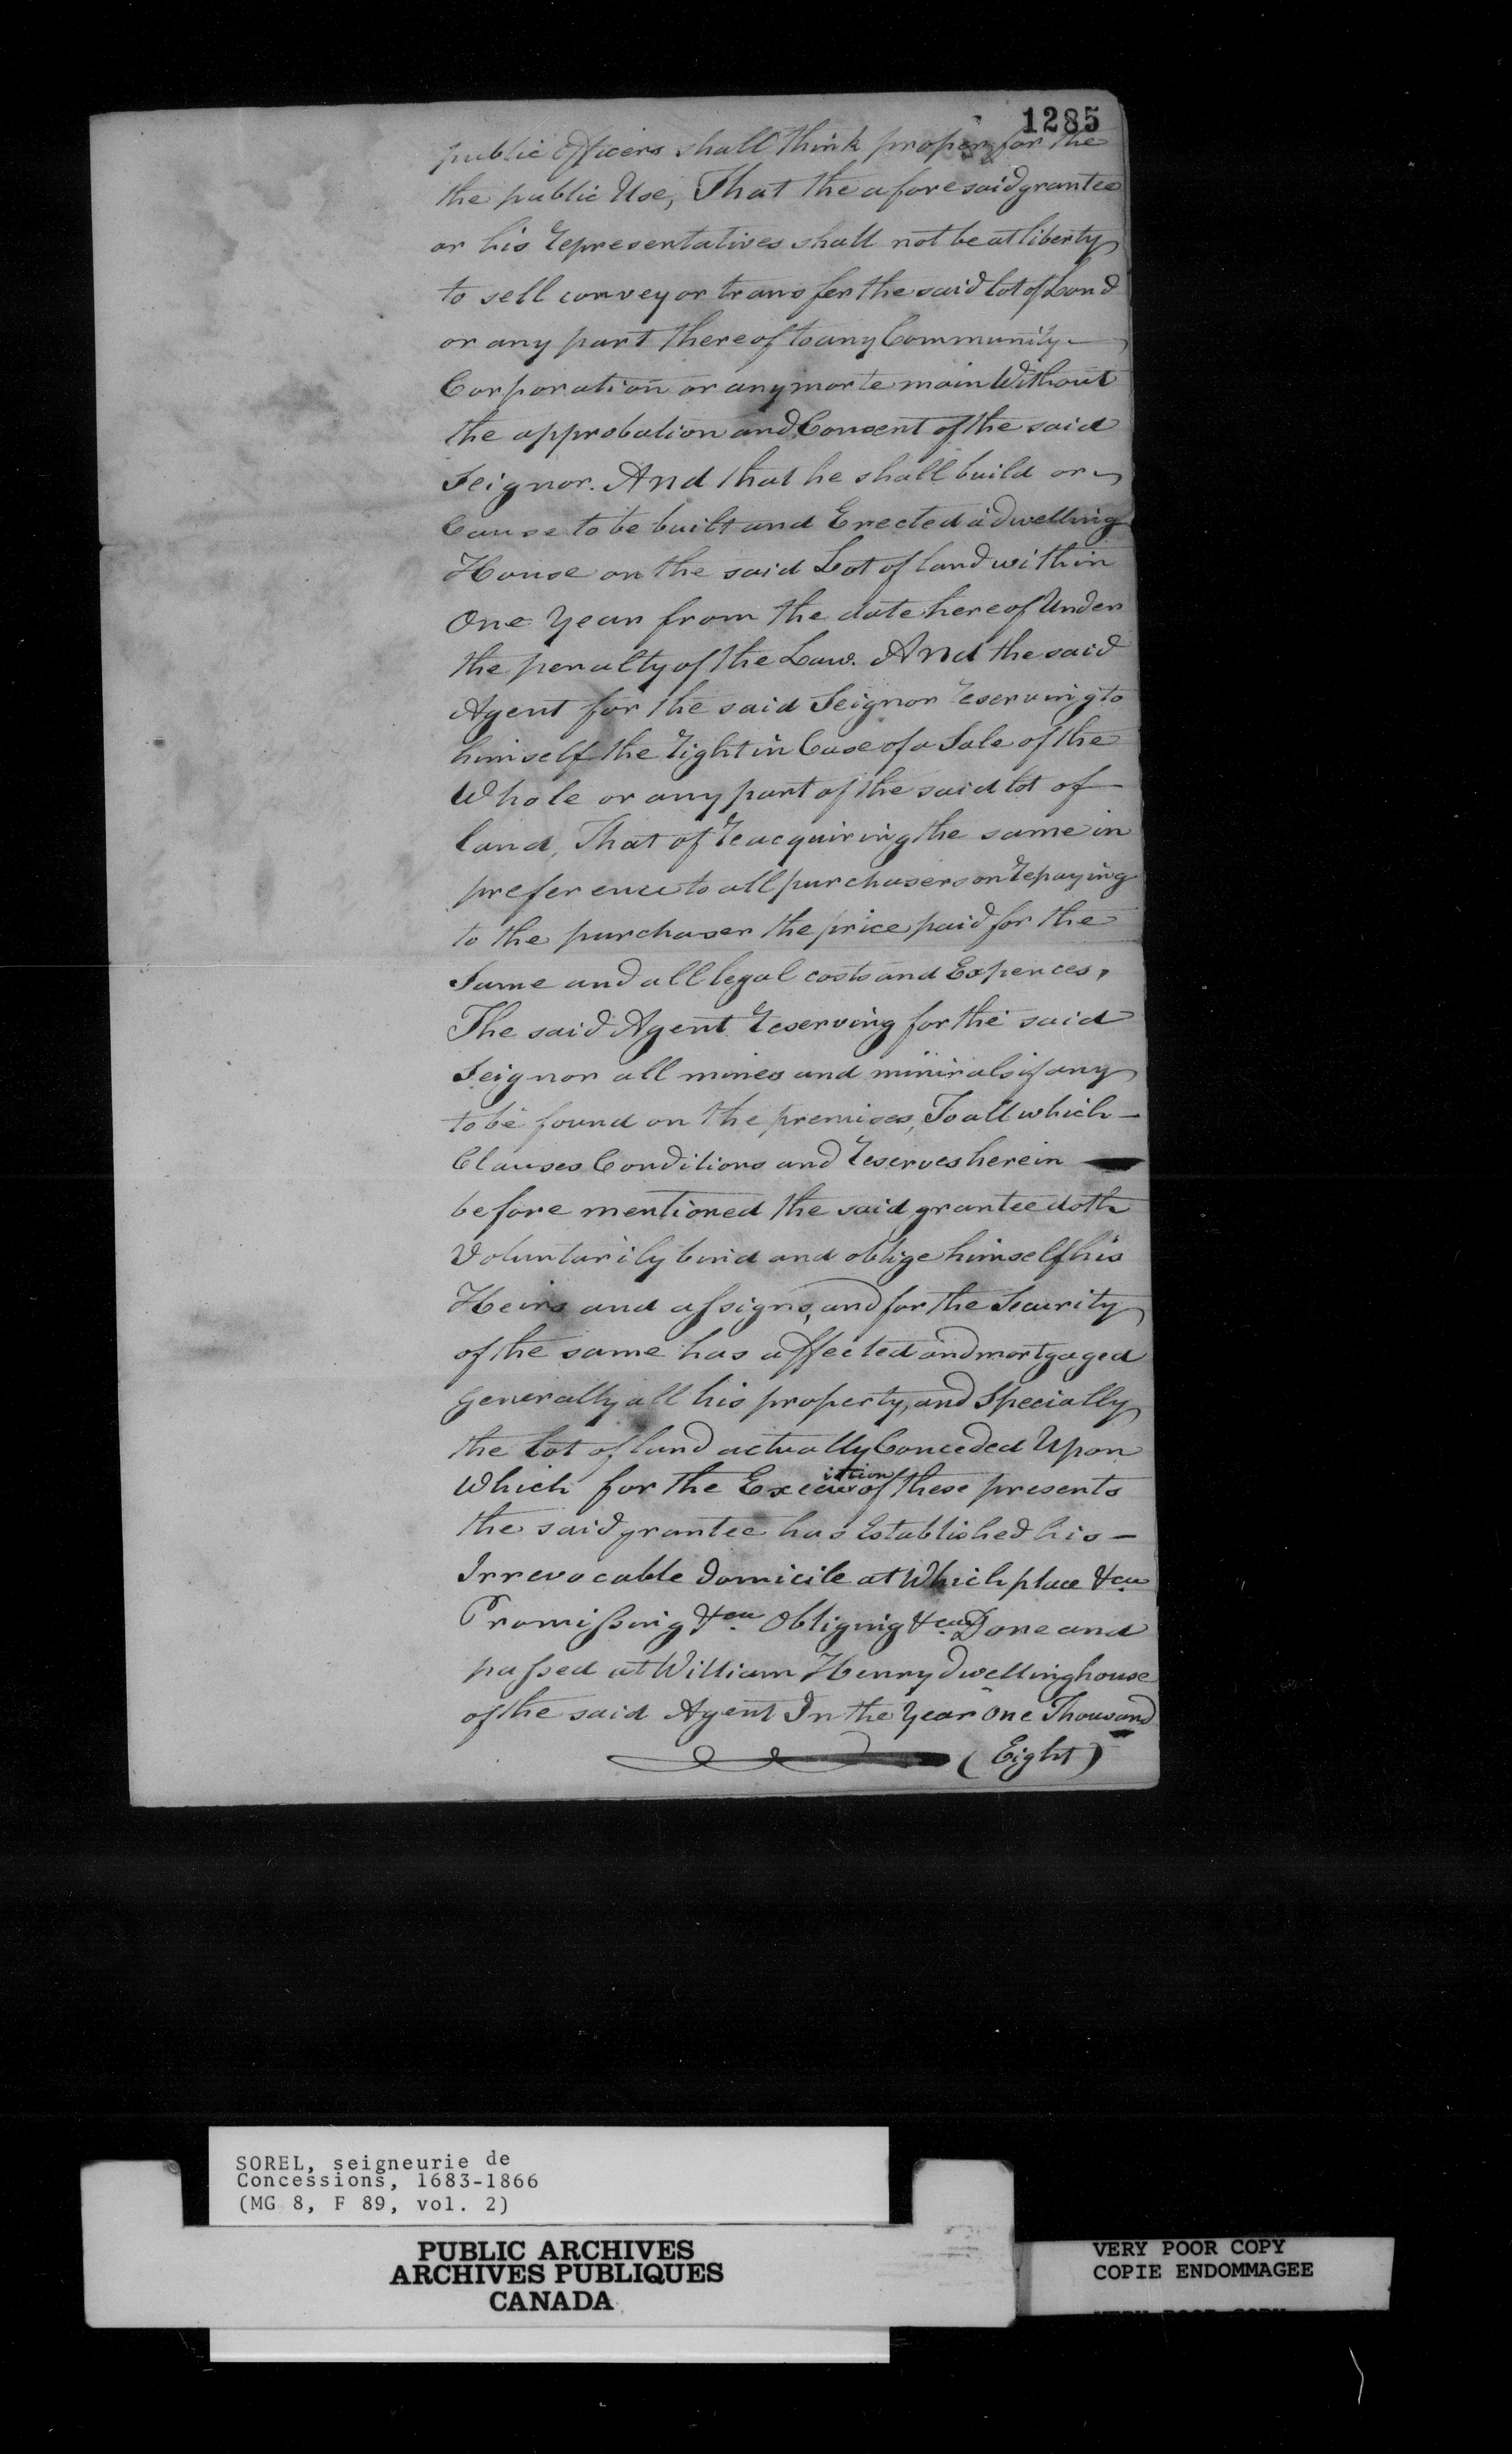 1285
public Officers shall think proper for the
the public Use, That the aforesaid grantee
or his representatives shall not be at liberty
to sell convey or transfer the said lot of Land
or any part thereof to any Community
Corporation or any morte main Without
the approbation and Consent of the said
Seignor. And that he shall build or
Cause to be built and Erected a dwelling
House on the said Lot of land within
One Year from the date hereof Under
the penalty of the Law. And the said
Agent for the said Seignor reserving to
himself the right in Case of a Sale of the
Whole or any part of the said lot of
land, That of reacquiring the same in
preference to all purchasers on repaying
to the purchaser the price paid for the
Same and all legal costs and Expences,
The said Agent reserving for the said
Seignor all mines and minirals if any
to be found on the premises, To all which
Clauses Conditions and reserves herein
before mentioned the said grantee doth
Voluntarily bind and oblige himself his
Heirs and assigns, and for the Security
of the same has affected and mortgaged
generally all his property, and Specially
the lot of land actually Conceded Upon
Which for the Execution of these presents
the said grantee has Established his
Irrevocable domicile at Which place &ca
Promissing &ca Obliging &ca Done and
passed at William Henry dwelling house
of the said Agent In the Year One Thousand
(Eight)
SOREL, seigneurie de
Concessions, 1683-1866
(MG 8, F 89, vol. 2)
PUBLIC ARCHIVES
ARCHIVES PUBLIQUES
CANADA
VERY POOR COPY
COPIE ENDOMMAGEE
VERY POOR COPY